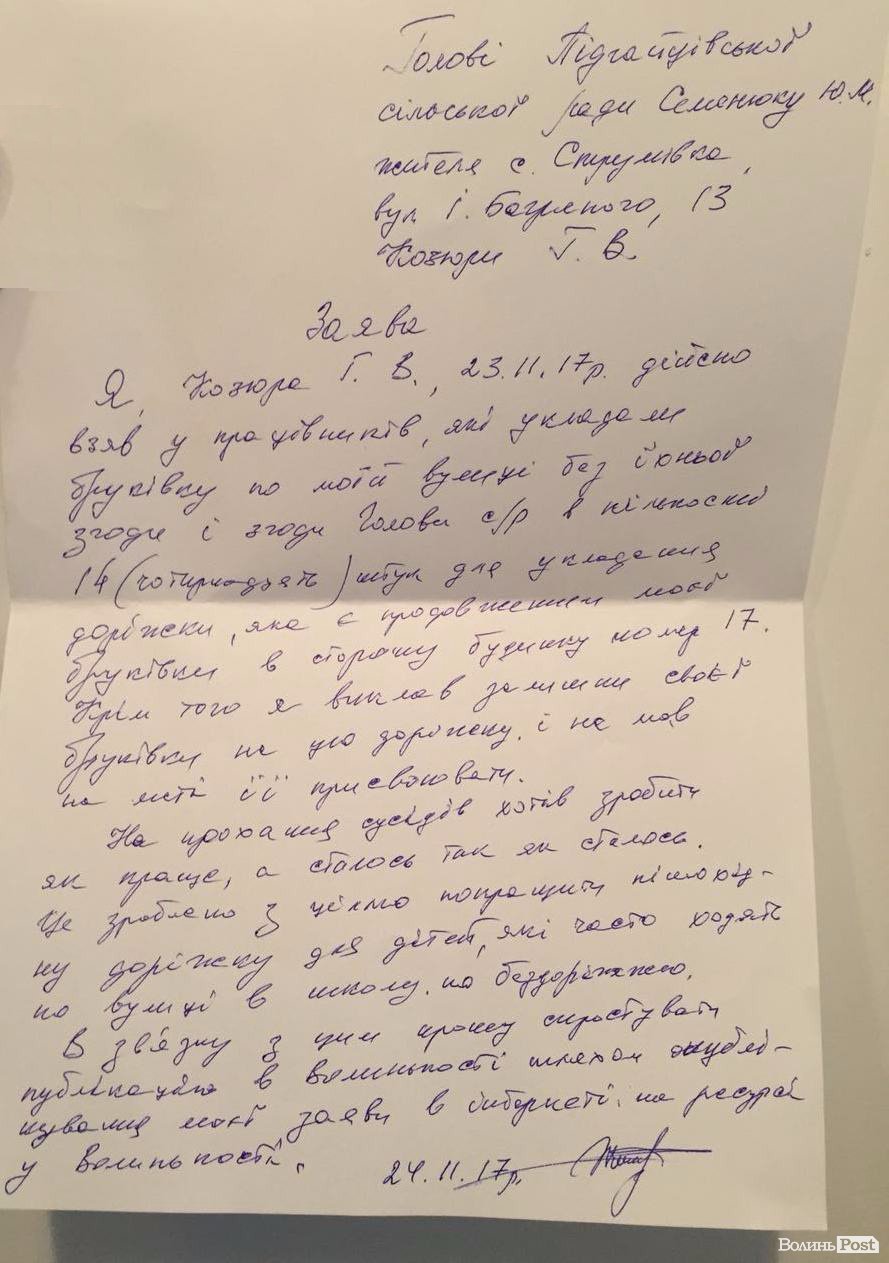 Голові Підгайцівської
сільської ради Семенюку Ю.М.
жителя с. Струмівка,
вул І. Багряного, 13
Козюри Г. В.
Заява
Я, Козюра Г. В., 23.11.17р. дійсно
взяв у працівників, які укладали
бруківку по моїй вулиці без їхньої
згоди і згоди Голови с/р в кількості
14 (чотирнадцять) штук для укладання
доріжки, яка є продовженням моєї
бруківки в сторону будинку номер 17.
Крім того я виклав залишки своєї
бруківки на цю доріжку, і не мав
на меті її присвоювати.
На прохання сусідів хотів зробити
як краще, а сталось так як сталось.
Це зроблено з цілю покращити пішохід-
ну доріжку для дітей, які часто ходять
по вулиці в школу по бездоріжжю.
В зв'язку з цим прошу спростувати
публікацію в Волиньпості шляхом опублі-
кування моєї заяви в інтернеті на ресурсі
у Волиньпості.
24.11.17р.
Волинь Post